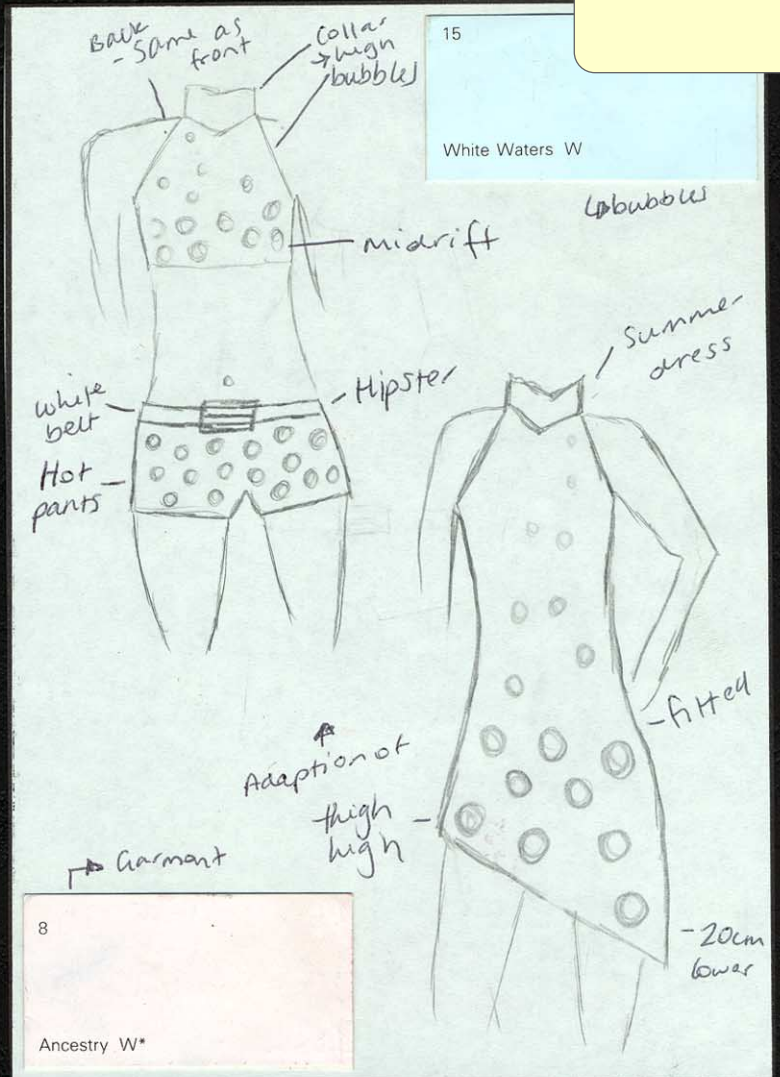 Back
- Same as
front
Collar
→ high
bubbles
15
White Waters W
↳ bubbles
midrift
Summer
dress
White
belt
Hipster
Hot
pants
- fitted
Adaption of
thigh
high
Garment
8
Ancestry W*
- 20cm
lower